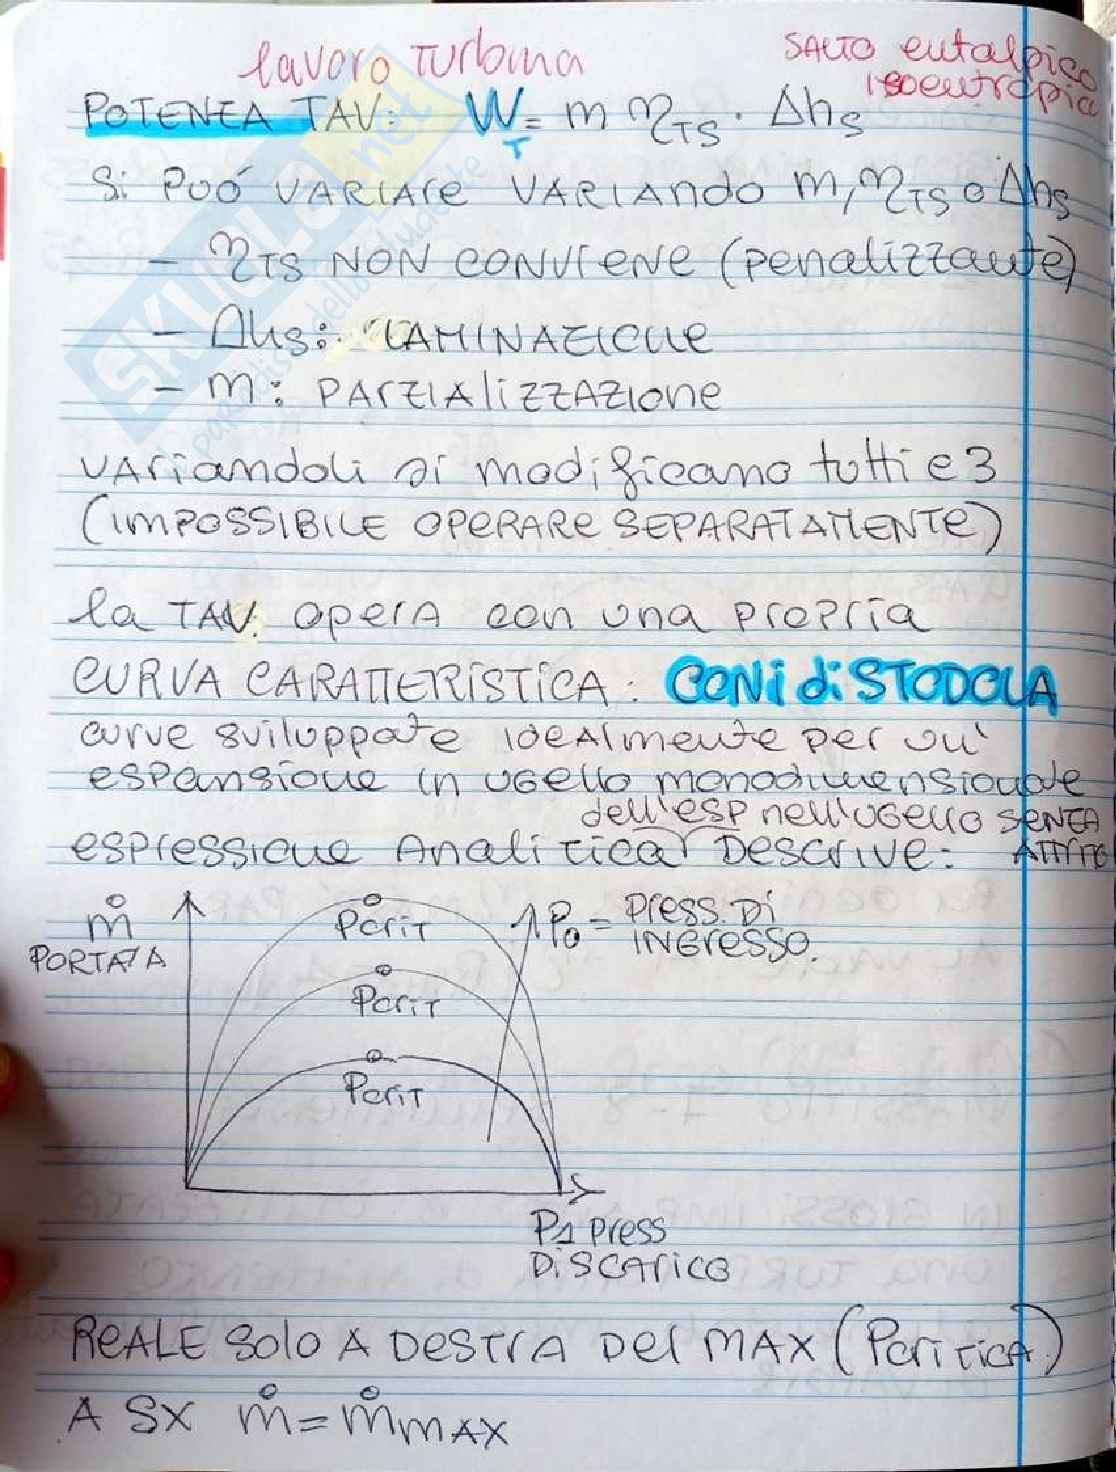 lavoro TURbina
SALTO entalpico
isoentropico
POTENZA TAV: W_T = m η_TS · Δh_s
Si PUÓ VARIARE VARIANDO m, η_TS o Δh_s
- η_TS NON CONVIENE (penalizzante)
- Δhs: LAMINAZIONE
- m: PARZIAlizzAZIone
VARIANDOli si modificano tutti e 3
(IMPOSSIBILE OPERARE SEPARATAMENTE)
la TAV. OPERA con una propria
CURVA CARATTERISTICA: CONI di STODOLA
curve sviluppate IDEALmente per un'
espansione in UGello monodimensionale
dell'esp nell'UGello SENZA
espressione Analitica Descrive: ATTRITO
ṁ
PORTATA
Pcrit
Pcrit
Pcrit
P0 = PRESS. Di
INGRESSO.
P1 press
Di SCARICO
REALE Solo A DESTRA Del MAX (PCRITICA)
A SX ṁ = ṁMAX
SKUOLA.net
paradiso dello studente